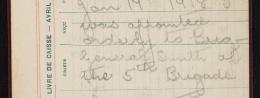 LIVRE DE CAISSE — AVRIL
REÇU
CRÉDITS
Jan 19 1918
was appointed
orderly to Brig
General Smith of
the 5th Brigade